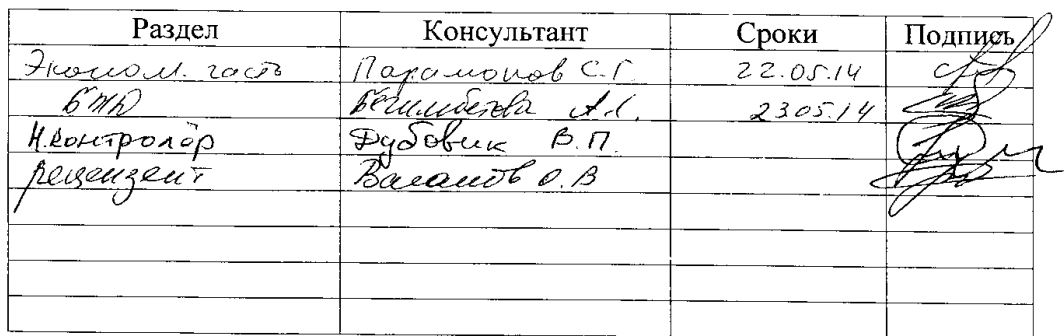 Раздел Консультант Сроки Подпись
Эконом. часть Парамонов С.Г. 22.05.14
БЖД Бегимбетова А.С. 23.05.14
Н.контролёр Дубовик В.П.
рецензент О.В